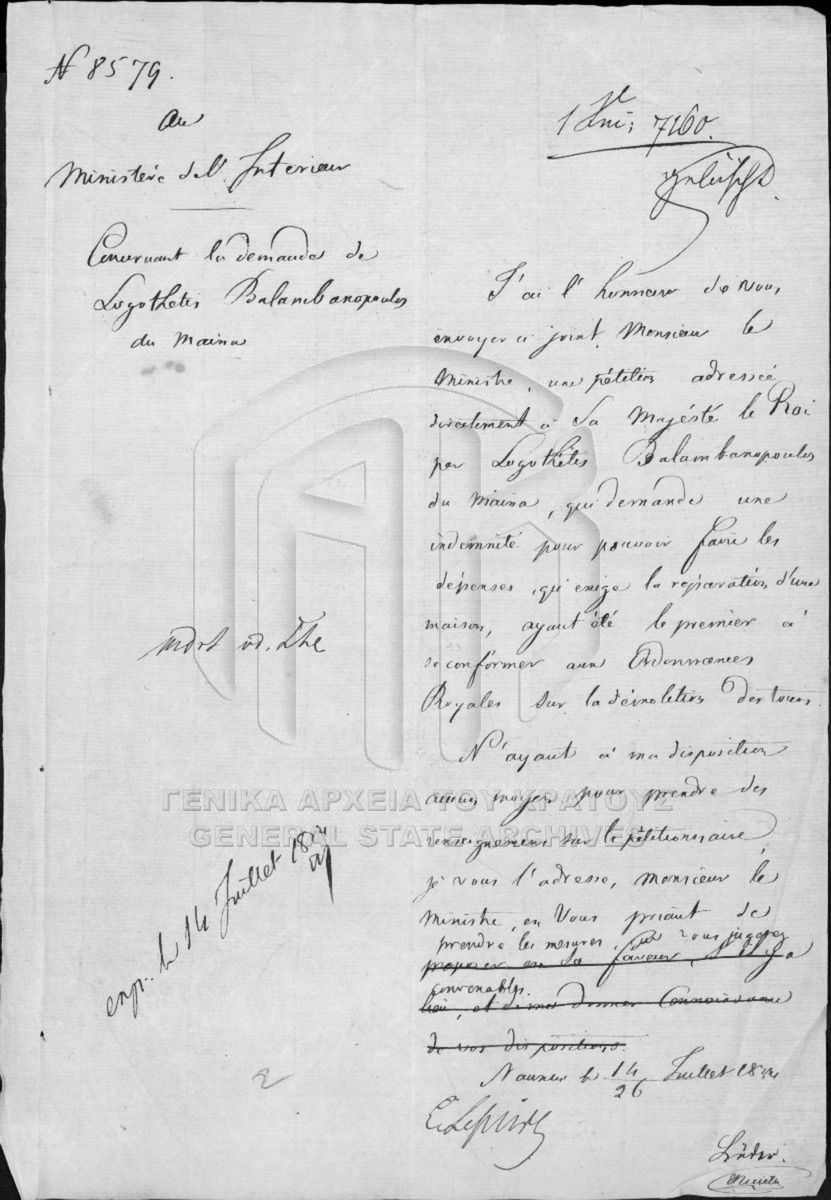 N 8579.
Au
Ministère de l'Interieur
Concernant la demande de
Logothetis Balambanopoulos
du Maina
7160.
J'ai l'honneur de vous
envoyer ci joint, Monsieur le
Ministre, une pétition adressée
directement à Sa Majésté le Roi
par Logothétis Balambanopoulos
du Maina, qui demande une
indemnité pour pouvoir faire les
dépenses, qu'exige la réparation d'une
maison, ayant été le premier à
se conformer aux Ordonnances
Royales sur la démolition des tours.
N'ayant à ma disposition
aucun moyen pour prendre des
renseignemens sur le pétitionnaire,
je vous l'adresse, Monsieur le
Ministre, en Vous priant de
prendre les mesures, que vous jugerez
proposer en sa faveur, s'il y a
convenables.
lieu, et de me donner Connaissance
de vos dispositions.
Nauplie le 14/26 Juillet 1834
exp. le 14 Juillet 1834
2
ΓΕΝΙΚΑ ΑΡΧΕΙΑ ΤΟΥ ΚΡΑΤΟΥΣ
GENERAL STATE ARCHIVES